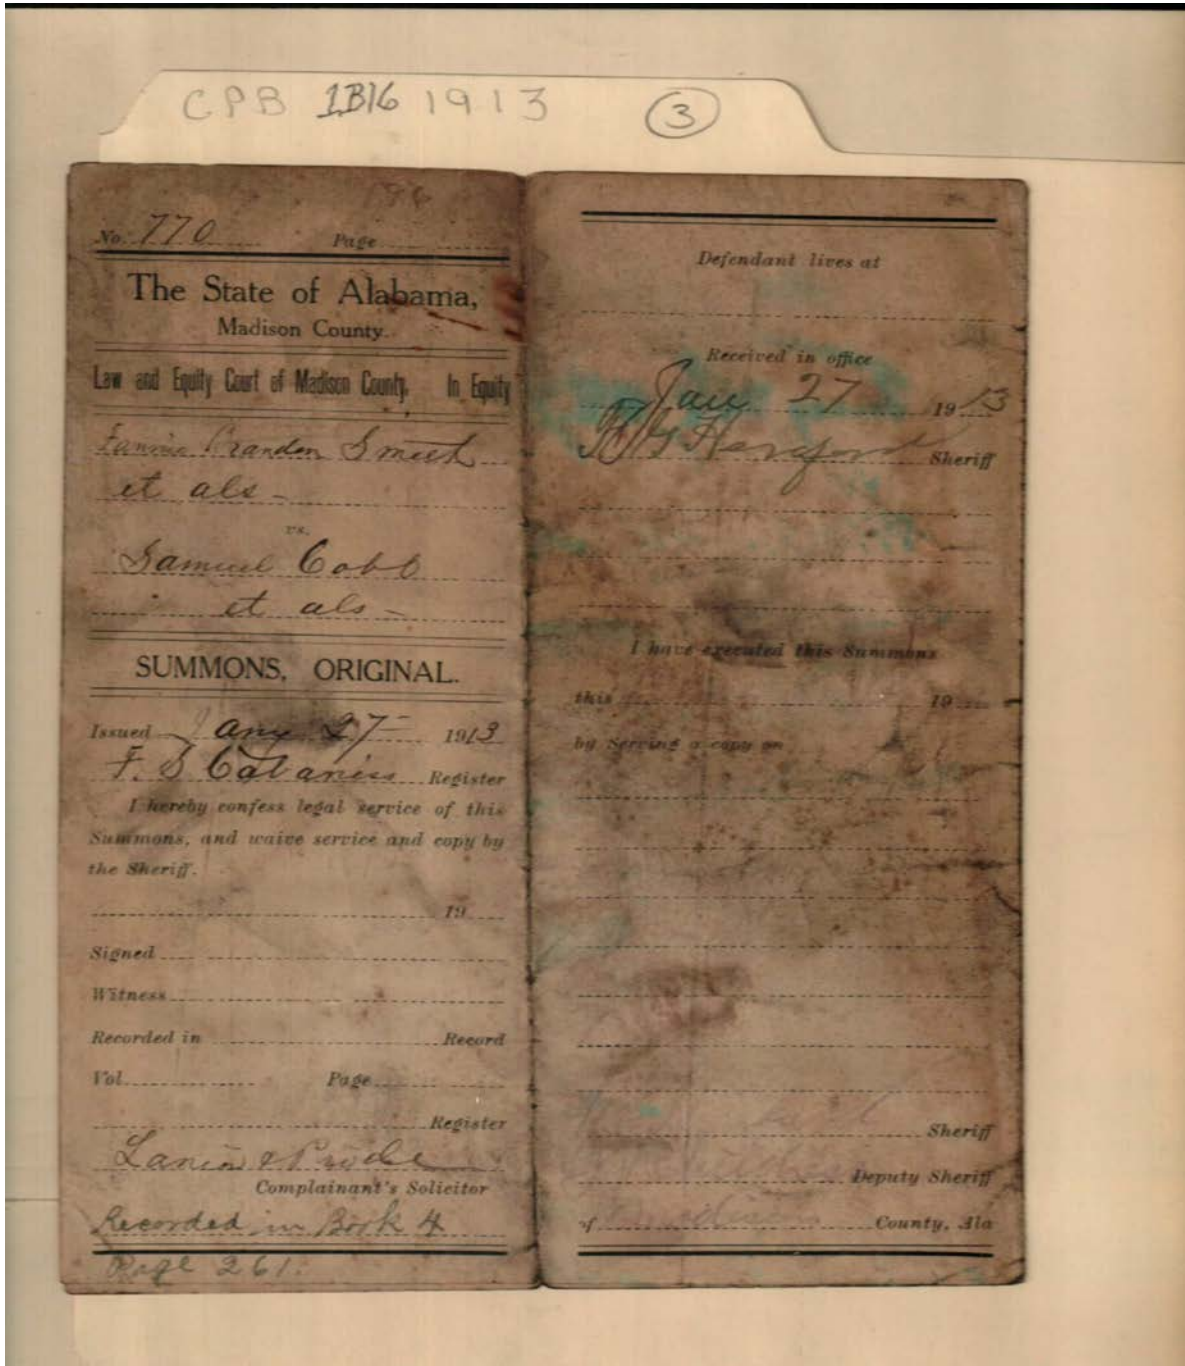 CPB 1B16 1913 3
196
No. 770 Page
The State of Alabama,
Madison County.
Law and Equity Court of Madison County, In Equity
Fannie Brandon Smith
et als -
vs.
Samuel Cobb
et als -
SUMMONS, ORIGINAL.
Issued Jany 27 1913
F. S Cabaniss Register
I hereby confess legal service of this
Summons, and waive service and copy by
the Sheriff.
19
Signed
Witness
Recorded in Record
Vol. Page
Register
Lanier & Pride
Complainant's Solicitor
Recorded in Book 4
Page 261.
Defendant lives at
Received in office
Jany 27 1913
Sheriff
I have executed this Summons
this 19
by Serving a copy on
Sheriff
Deputy Sheriff
of Madison County, Ala